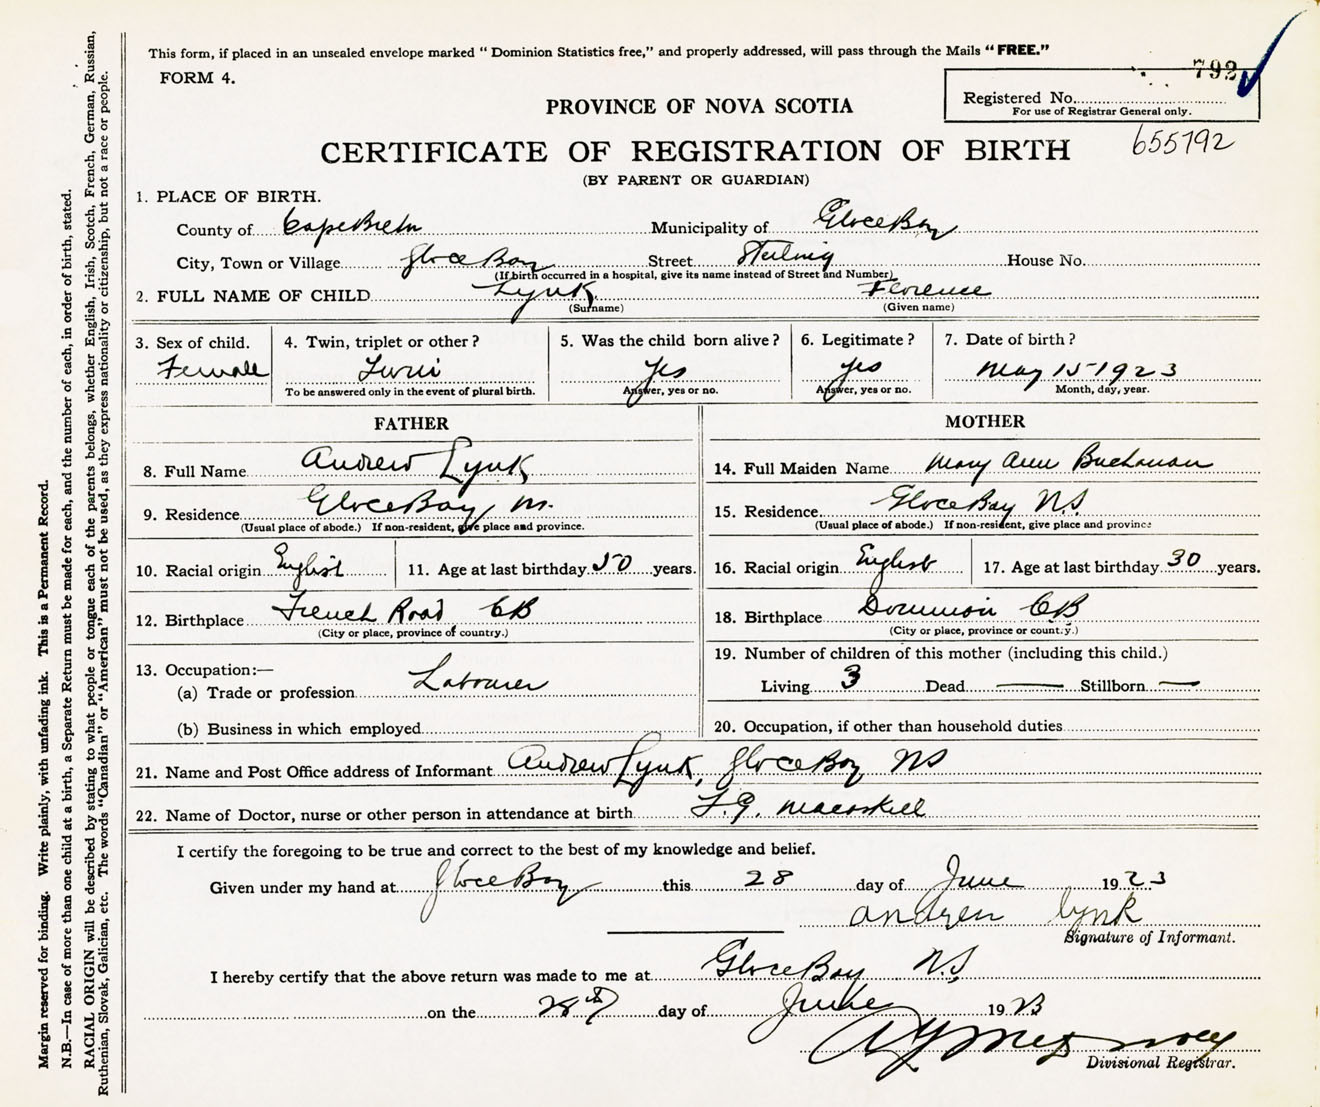 This form, if placed in an unsealed envelope marked " Dominion Statistics free," and properly addressed, will pass through the Mails " FREE."
FORM 4.
792
Registered No.
For use of Registrar General only.
PROVINCE OF NOVA SCOTIA
655792
CERTIFICATE OF REGISTRATION OF BIRTH
(BY PARENT OR GUARDIAN)
1. PLACE OF BIRTH.
County of Cape Breton Municipality of Glace Bay
City, Town or Village Glace Bay Street Sterling House No.
(If birth occurred in a hospital, give its name instead of Street and Number)
2. FULL NAME OF CHILD Lynk Florence
(Surname) (Given name)
3. Sex of child. 4. Twin, triplet or other? 5. Was the child born alive? 6. Legitimate? 7. Date of birth?
Female Twin Yes Yes May 15 1923
To be answered only in the event of plural birth. Answer, yes or no. Answer, yes or no. Month, day, year.
FATHER MOTHER
8. Full Name Andrew Lynk 14. Full Maiden Name Mary Ann Buchanan
9. Residence Glace Bay 15. Residence Glace Bay N.S.
(Usual place of abode.) If non-resident, give place and province. (Usual place of abode.) If non-resident, give place and province
10. Racial origin English 11. Age at last birthday 50 years. 16. Racial origin English 17. Age at last birthday 30 years.
12. Birthplace French Road CB 18. Birthplace Dominion CB
(City or place, province of country.) (City or place, province or country.)
13. Occupation:— 19. Number of children of this mother (including this child.)
(a) Trade or profession Labourer Living 3 Dead — Stillborn —
(b) Business in which employed 20. Occupation, if other than household duties
21. Name and Post Office address of Informant Andrew Lynk, Glace Bay NS
22. Name of Doctor, nurse or other person in attendance at birth F.G. Macaskill
I certify the foregoing to be true and correct to the best of my knowledge and belief.
Given under my hand at Glace Bay this 28 day of June 1923
andrew lynk
Signature of Informant.
I hereby certify that the above return was made to me at Glace Bay N.S
on the 28th day of June 1923
Divisional Registrar.
Margin reserved for binding. Write plainly, with unfading ink. This is a Permanent Record.
N.B.—In case of more than one child at a birth, a Separate Return must be made for each, and the number of each, in order of birth, stated.
RACIAL ORIGIN will be described by stating to what people or tongue each of the parents belongs, whether English, Irish, Scotch, French, German, Russian,
Ruthenian, Slovak, Galician, etc. The words "Canadian" or "American" must not be used, as they express nationality or citizenship, but not a race or people.